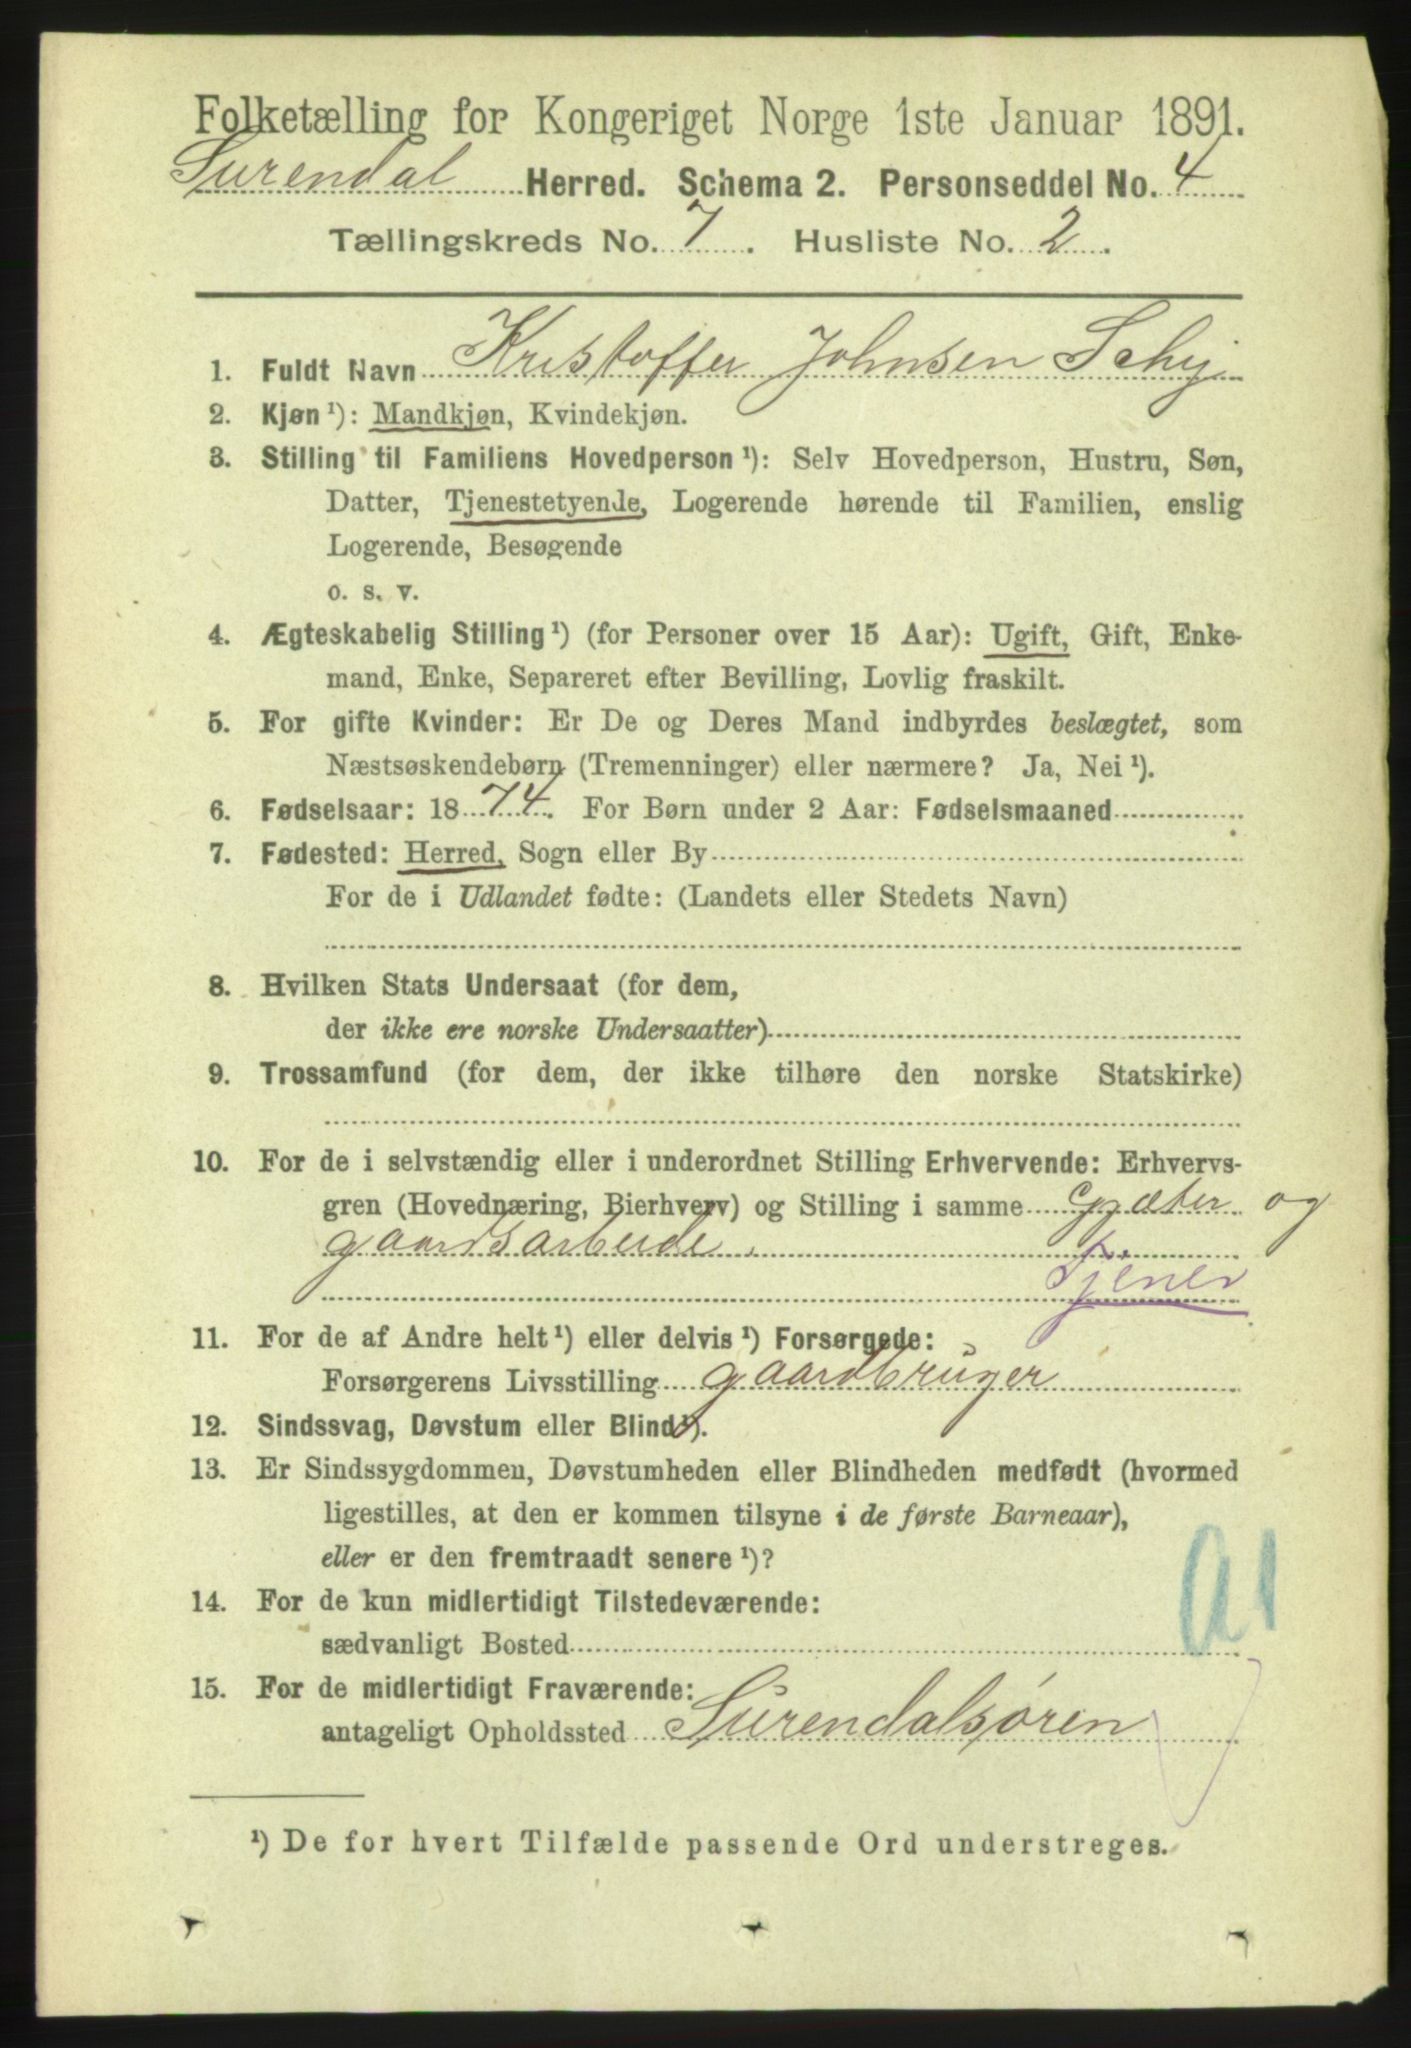 Folketælling for Kongeriget Norge 1ste Januar 1891.
Surendal Herred. Schema 2. Personseddel No. 4
Tællingskreds No. 7. Husliste No. 2.
1. Fuldt Navn Kristoffer Johnsen Schy
2. Kjøn ¹): Mandkjøn, Kvindekjøn.
3. Stilling til Familiens Hovedperson ¹): Selv Hovedperson, Hustru, Søn,
Datter, Tjenestetyende, Logerende hørende til Familien, enslig
Logerende, Besøgende
o. s. v.
4. Ægteskabelig Stilling ¹) (for Personer over 15 Aar): Ugift, Gift, Enke-
mand, Enke, Separeret efter Bevilling, Lovlig fraskilt.
5. For gifte Kvinder: Er De og Deres Mand indbyrdes beslægtet, som
Næstsøskendebørn (Tremenninger) eller nærmere? Ja, Nei ¹).
6. Fødselsaar: 1874. For Børn under 2 Aar: Fødselsmaaned
7. Fødested: Herred, Sogn eller By
For de i Udlandet fødte: (Landets eller Stedets Navn)
8. Hvilken Stats Undersaat (for dem,
der ikke ere norske Undersaatter)
9. Trossamfund (for dem, der ikke tilhøre den norske Statskirke)
10. For de i selvstændig eller i underordnet Stilling Erhvervende: Erhvervs-
gren (Hovednæring, Bierhverv) og Stilling i samme og
gaardsarbeide.
Tjener
11. For de af Andre helt ¹) eller delvis ¹) Forsørgede:
Forsørgerens Livsstilling gaardbruger
12. Sindssvag, Døvstum eller Blind ¹).
13. Er Sindssygdommen, Døvstumheden eller Blindheden medfødt (hvormed
ligestilles, at den er kommen tilsyne i de første Barneaar),
eller er den fremtraadt senere ¹)?
a1
14. For de kun midlertidigt Tilstedeværende:
sædvanligt Bosted
15. For de midlertidigt Fraværende:
antageligt Opholdssted Surendalsøren
¹) De for hvert Tilfælde passende Ord understreges.